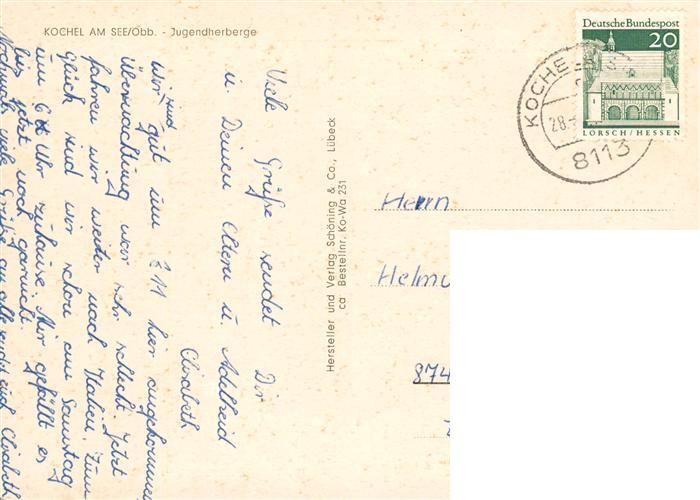 KOCHEL AM SEE/Obb. - Jugendherberge
Deutsche Bundespost
20
LORSCH/HESSEN
KOCHEL
28.
8113
Viele Grüße sendet Dir
u. Deinen Eltern u. Adelheid
Elisabeth
Wir sind gut um 2 hier angekommen
Übernachtung war sehr schlecht. Jetzt
fahren wir weiter nach Italien. Zum
Glück sind wir schon am Samstag
um 6 Uhr zuhause. Mir gefällt es
bis jetzt noch garnicht.
Nochmals viele Grüße an alle sendet euch Elisabeth
Hersteller und Verlag Schöning & Co., Lübeck
ca Bestellnr. Ko-Wa 231
Herrn
Helmu
874